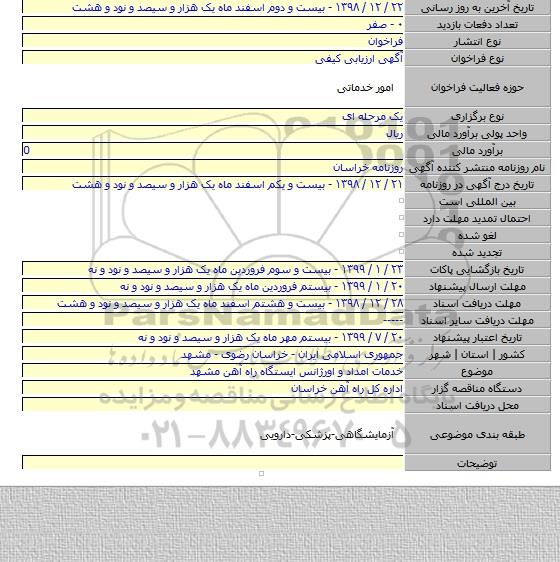 تاریخ آخرین به روز رسانی ۲۲ / ۱۲ / ۱۳۹۸ - بیست و دوم اسفند ماه یک هزار و سیصد و نود و هشت
تعداد دفعات بازدید ۰ - صفر
نوع انتشار فراخوان
نوع فراخوان آگهی ارزیابی کیفی
حوزه فعالیت فراخوان امور خدماتی
نوع برگزاری یک مرحله ای
واحد پولی برآورد مالی ریال
برآورد مالی 0
نام روزنامه منتشر کننده آگهی روزنامه خراسان
تاریخ درج آگهی در روزنامه ۲۱ / ۱۲ / ۱۳۹۸ - بیست و یکم اسفند ماه یک هزار و سیصد و نود و هشت
بین المللی است
احتمال تمدید مهلت دارد
لغو شده
تجدید شده
تاریخ بازگشایی پاکات ۲۳ / ۱ / ۱۳۹۹ - بیست و سوم فروردین ماه یک هزار و سیصد و نود و نه
مهلت ارسال پیشنهاد ۲۰ / ۱ / ۱۳۹۹ - بیستم فروردین ماه یک هزار و سیصد و نود و نه
مهلت دریافت اسناد ۲۸ / ۱۲ / ۱۳۹۸ - بیست و هشتم اسفند ماه یک هزار و سیصد و نود و هشت
مهلت دریافت سایر اسناد -----
تاریخ اعتبار پیشنهاد ۲۰ / ۷ / ۱۳۹۹ - بیستم مهر ماه یک هزار و سیصد و نود و نه
کشور | استان | شهر جمهوری اسلامی ایران - خراسان رضوی - مشهد
موضوع خدمات امداد و اورژانس ایستگاه راه آهن مشهد
دستگاه مناقصه گزار اداره کل راه آهن خراسان
محل دریافت اسناد
طبقه بندی موضوعی آزمایشگاهی-پزشکی-دارویی
توضیحات
ParsNamadData
پایگاه اطلاع رسانی مناقصه و مزایده
۰۲۱-۸۸۳۴۹۶۷۰-۵